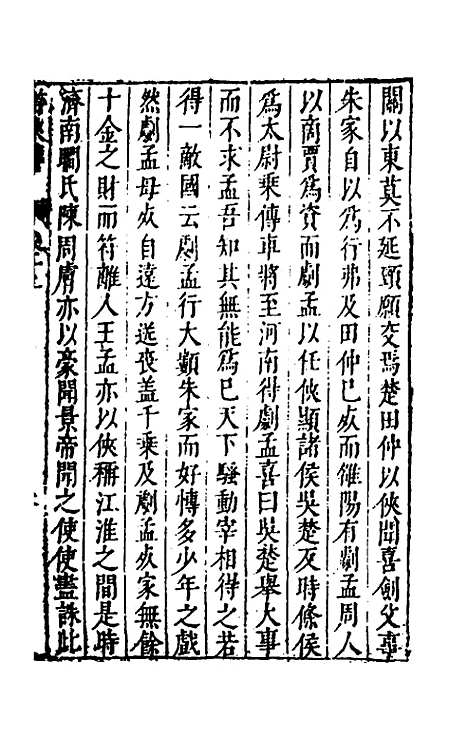 關以東莫不延頸願交焉楚田仲以俠聞喜劍父事
朱家自以爲行弗及田仲已死而雒陽有劇孟周人
以商賈爲資而劇孟以任俠顯諸侯吳楚反時條侯
爲太尉乘傳車將至河南得劇孟喜曰吳楚舉大事
而不求孟吾知其無能爲已天下騷動宰相得之若
得一敵國云劇孟行大類朱家而好博多少年之戲
然劇孟母死自遠方送喪蓋千乘及劇孟死家無餘
十金之財而符離人王孟亦以俠稱江淮之間是時
濟南瞷氏陳周庸亦以豪聞景帝聞之使使盡誅此